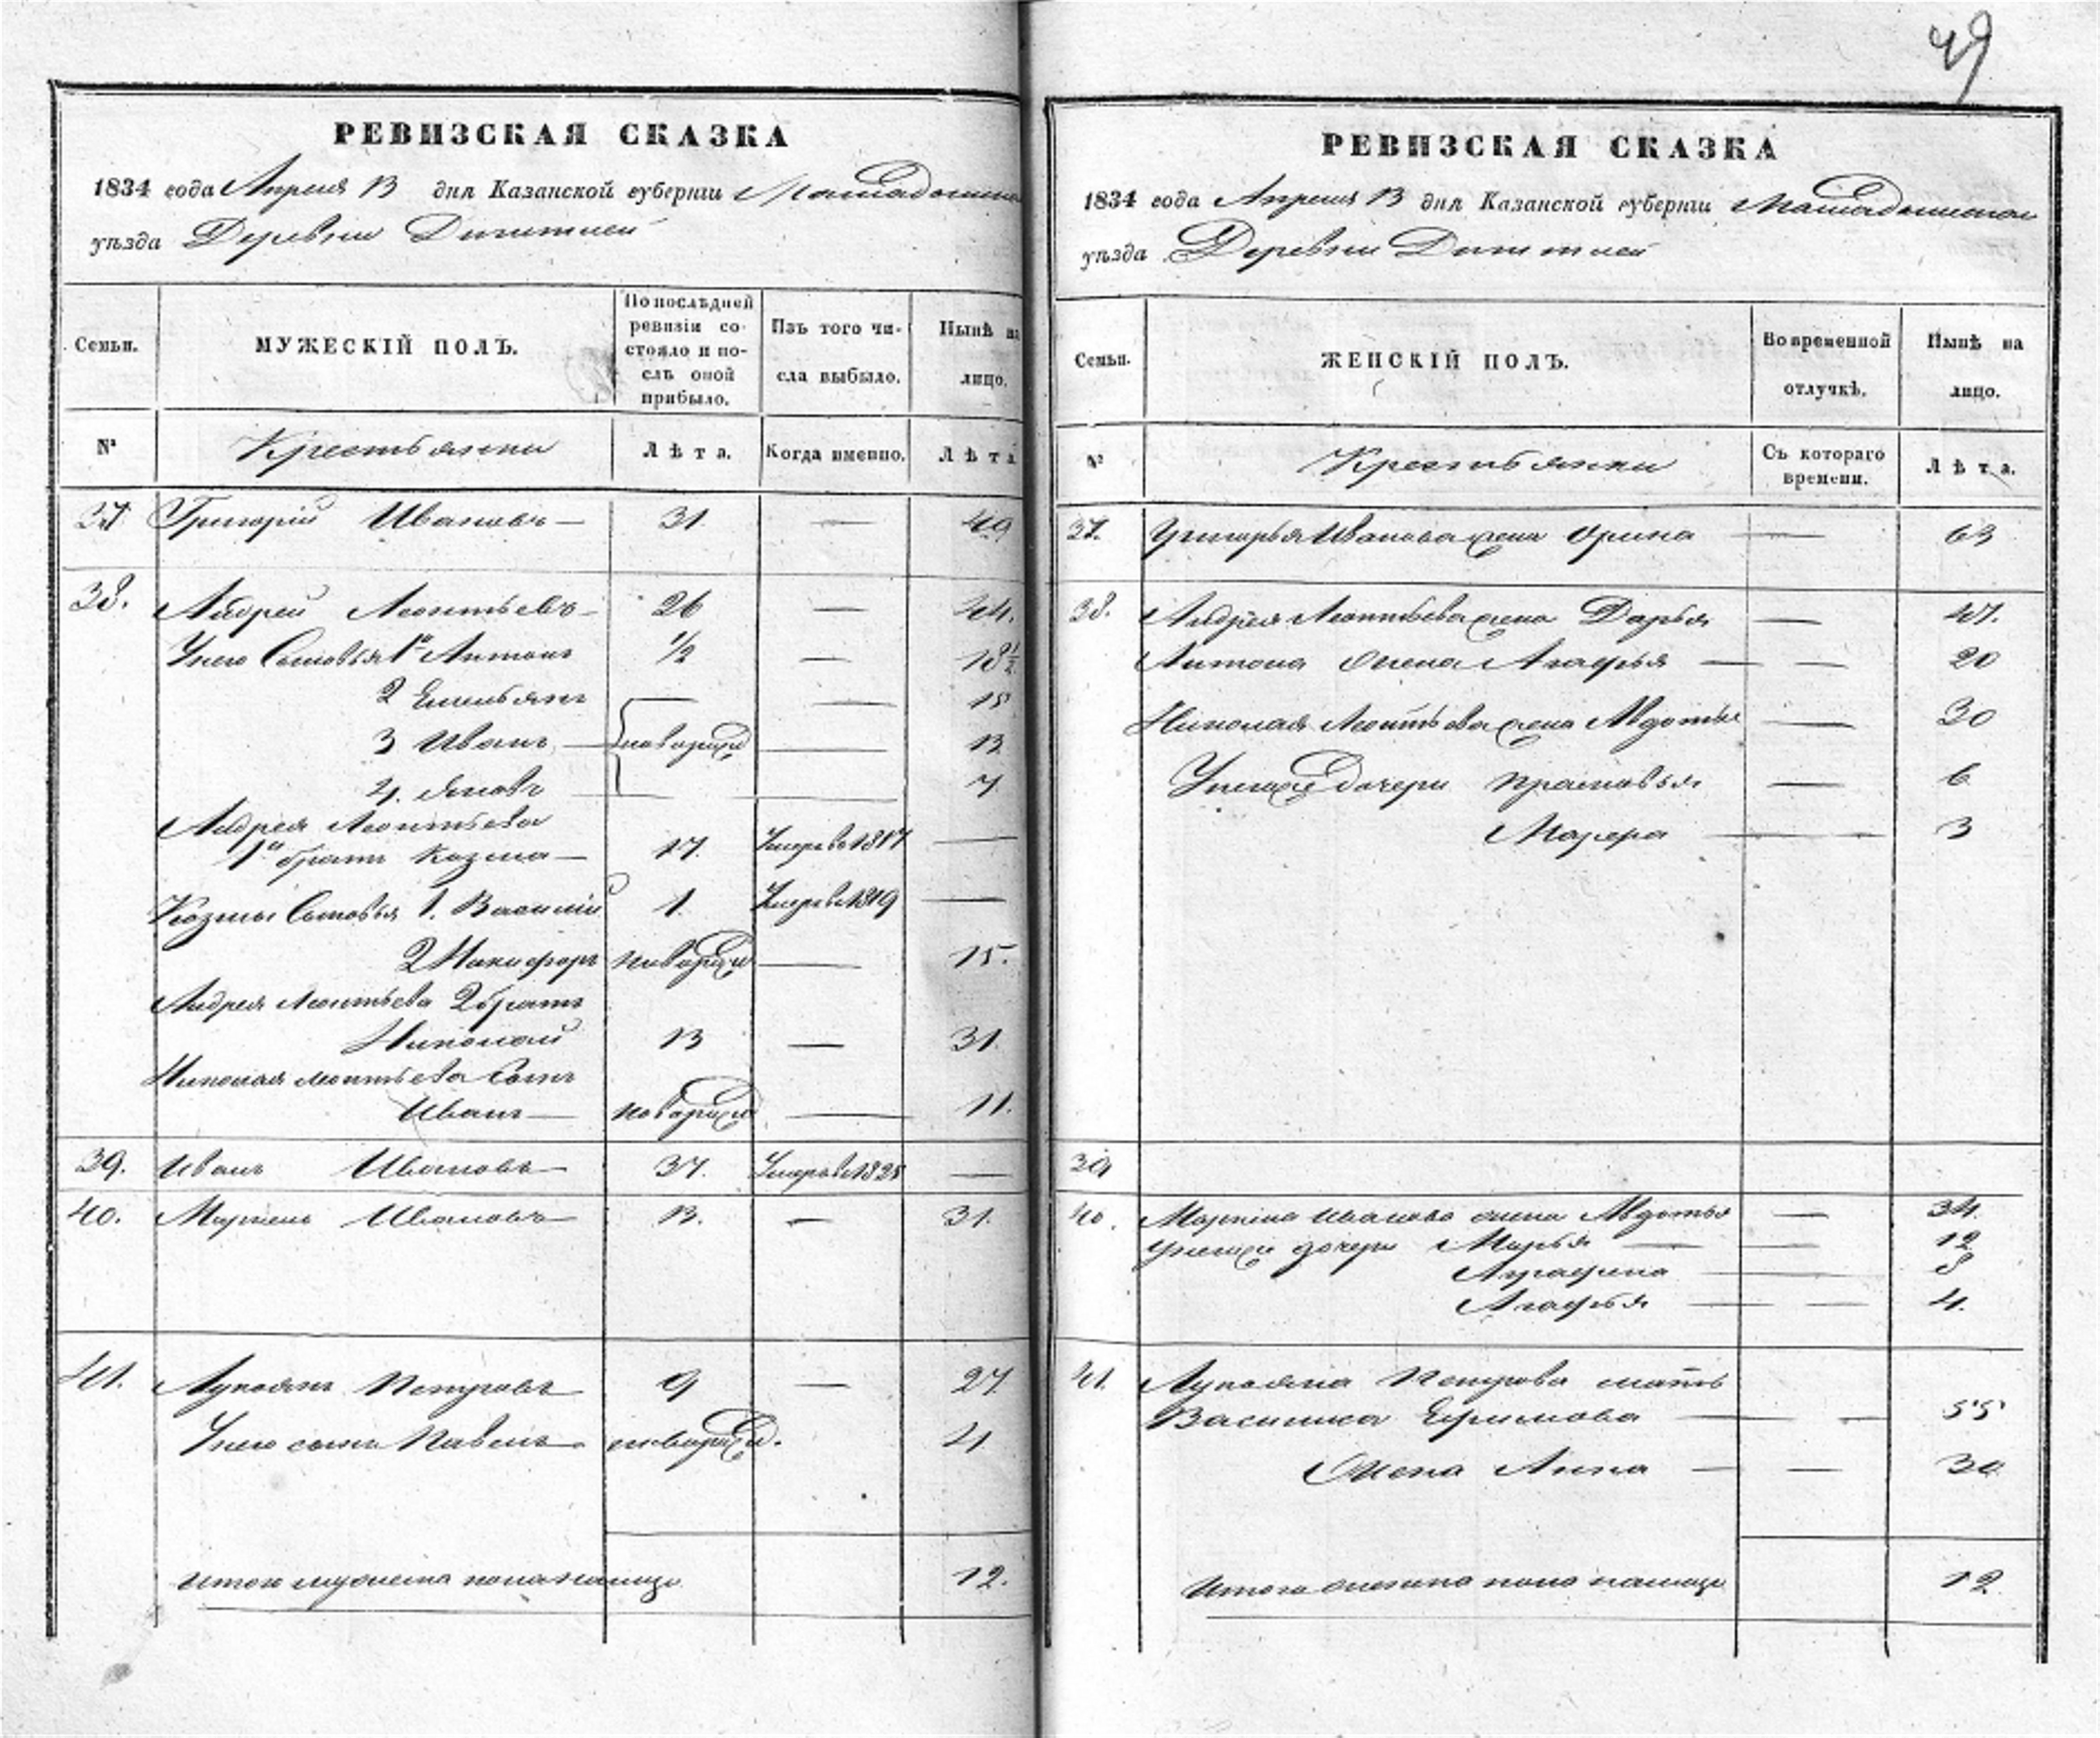 49
РЕВИЗСКАЯ СКАЗКА
1834 года Апреля 13 дня Казанской губернiи Мамадышскаго
уѣзда Деревни
Семьи.
МУЖЕСКІЙ ПОЛЪ.
По послѣдней ревизіи состояло и послѣ оной прибыло.
Изъ того числа выбыло.
Нынѣ на лицо.
№
Крестьянки
Лѣта.
Когда именно.
Лѣта
37. Григорій Ивановъ — 31. — 49
38. Андрей Леонтьевъ — 26 — 44.
У него Сыновья 1й Антонъ 1/2 — 18 1/2
2 Емельянъ — — 15
3 Иванъ — новорожд — 13
4. Яковъ — — 7
Андрея Леонтьева
1й братъ Козма — 17. Умеръ в 1817 —
Козмы Сыновья 1. Василий 1. Умеръ в 1819 —
2 Никифоръ новорожд — 15.
Андрея Леонтьева 2 братъ
Николай 13 — 31.
Николая Леонтьева Сынъ
Иванъ — новорожд — 11.
39. Иванъ Ивановъ — 37. Умеръ в —
40. Маркелъ Ивановъ — 13. — 31.
41. Лукоянъ Петровъ — 9 — 27.
У него сынъ Павелъ — новорожд. 4
Итого мужеска пола налицо 12.
РЕВИЗСКАЯ СКАЗКА
1834 года Апреля 13 дня Казанской губернiи Мамадышскаго
уѣзда Деревни
Семьи.
ЖЕНСКІЙ ПОЛЪ.
Во временной отлучкѣ.
Нынѣ на лицо.
№
Крестьянки
Съ котораго времени.
Лѣта.
37. Григорья Иванова жена Орина — 63
38. Андрея Леонтьева жена Дарья — 47.
Антона жена Агафья — — 20
Николая Леонтьева жена Авдотья — 30
У него дочери Прасковья — 6
3
39
40. Иванова жена Авдотья — 34.
дочери Марья — — 12
Аграфена — 8
Агафья — — 4.
41. Лукояна Петрова мать
Василиса Ефимова — — 55
Жена Анна — — 30
Итого женска пола налицо 12.